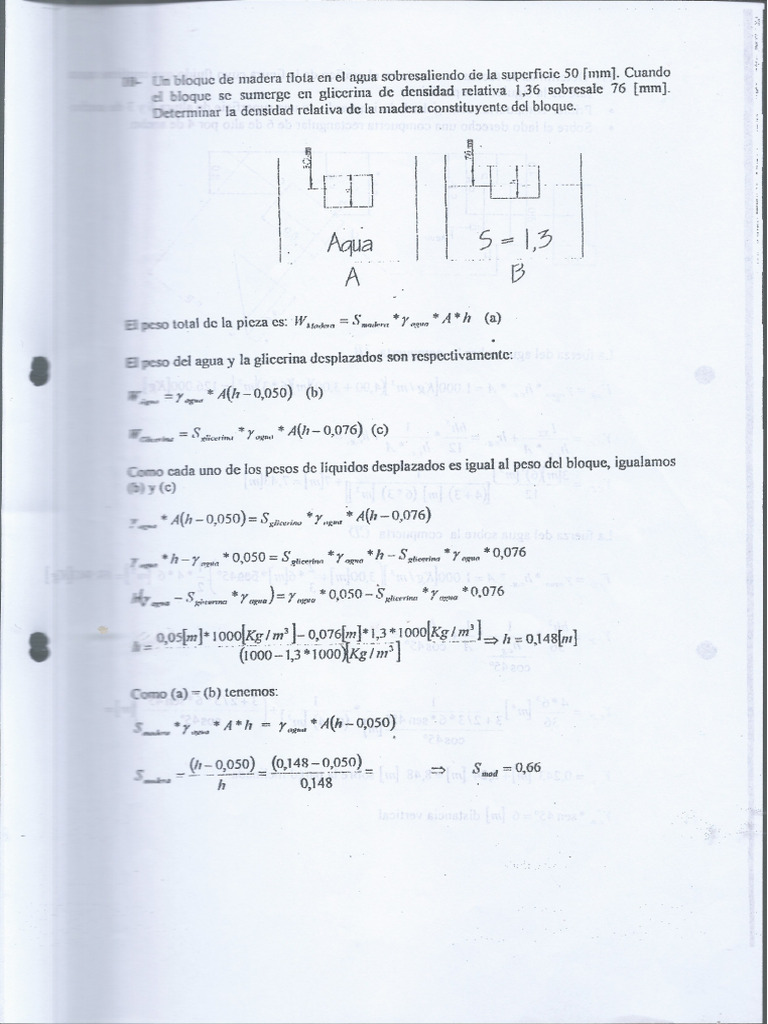 Un bloque de madera flota en el agua sobresaliendo de la superficie 50 [mm]. Cuando
el bloque se sumerge en glicerina de densidad relativa 1,36 sobresale 76 [mm].
Determinar la densidad relativa de la madera constituyente del bloque.
76 mm
Aqua
A
S = 1,3
B
El peso total de la pieza es: W_Madera = S_madera * γ_agua * A * h (a)
El peso del agua y la glicerina desplazados son respectivamente:
W_agua = γ_agua * A(h − 0,050) (b)
W_Glicerina = S_glicerina * γ_agua * A(h − 0,076) (c)
Como cada uno de los pesos de líquidos desplazados es igual al peso del bloque, igualamos
(b) y (c)
γ_agua * A(h − 0,050) = S_glicerina * γ_agua * A(h − 0,076)
γ_agua * h − γ_agua * 0,050 = S_glicerina * γ_agua * h − S_glicerina * γ_agua * 0,076
h(γ_agua − S_glicerina * γ_agua) = γ_agua * 0,050 − S_glicerina * γ_agua * 0,076
h = (0,05[m] * 1000[Kg / m³] − 0,076[m] * 1,3 * 1000[Kg / m³]) / ((1000 − 1,3 * 1000)[Kg / m³]) ⇒ h = 0,148[m]
Como (a) = (b) tenemos:
S_madera * γ_agua * A * h = γ_agua * A(h − 0,050)
S_madera = (h − 0,050) / h = (0,148 − 0,050) / 0,148 = ⇒ S_mad = 0,66